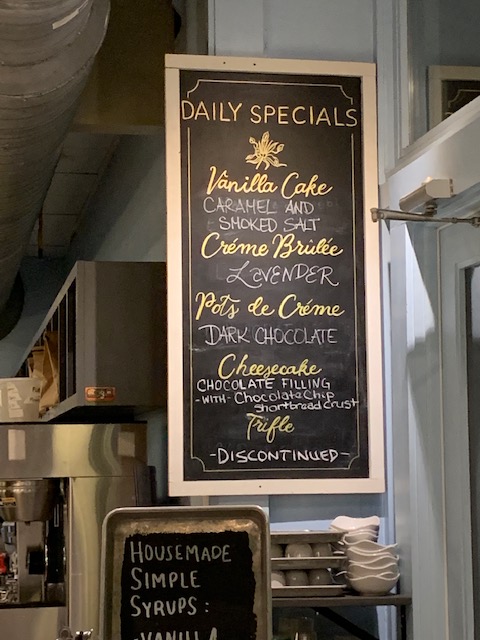 DAILY SPECIALS
Vanilla Cake
CARAMEL AND
SMOKED SALT
Créme Brûlée
LAVENDER
Pots de Créme
DARK CHOCOLATE
Cheesecake
CHOCOLATE FILLING
-WITH- Chocolate Chip
shortbread crust
Trifle
-DISCONTINUED-
HOUSEMADE
SIMPLE
SYRUPS: